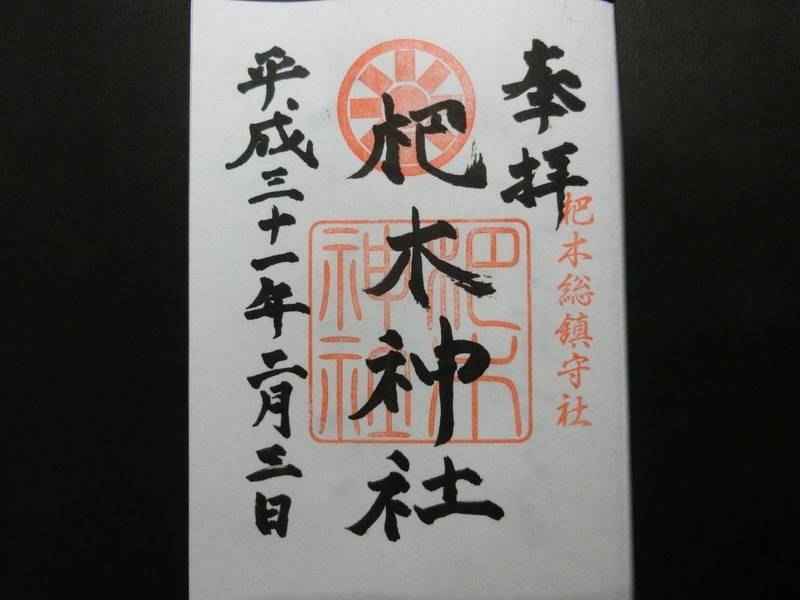 奉拝
杷木総鎮守社
杷木神社
杷木神社
平成三十一年二月三日